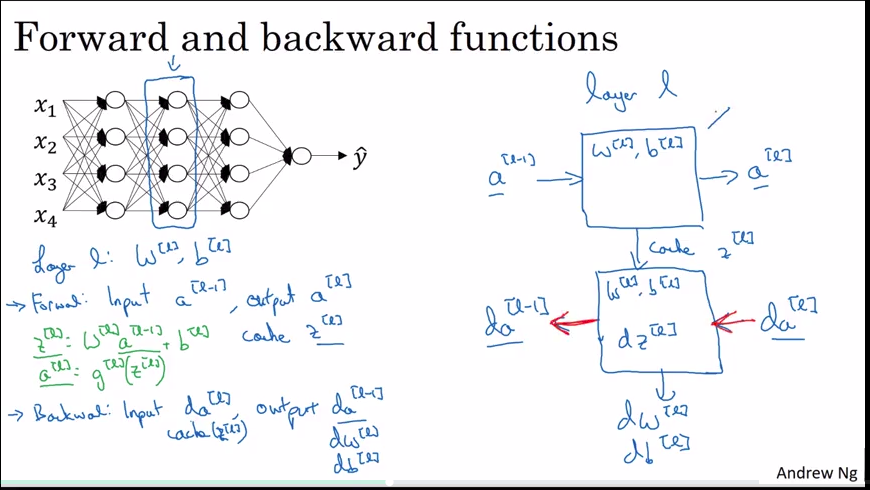 Forward and backward functions
x₁
x₂
x₃
x₄
ŷ
Layer l: W^[l], b^[l]
→ Forwal: Input a^[l-1], output a^[l]
cache z^[l]
z^[l] = W^[l] a^[l-1] + b^[l]
a^[l] = g^[l](z^[l])
→ Backwal: Input da^[l], output da^[l-1]
cache(z^[l])
dW^[l]
db^[l]
layer l
a^[l-1]
W^[l], b^[l]
a^[l]
cache z^[l]
da^[l-1]
W^[l], b^[l]
dz^[l]
da^[l]
dW^[l]
db^[l]
Andrew Ng